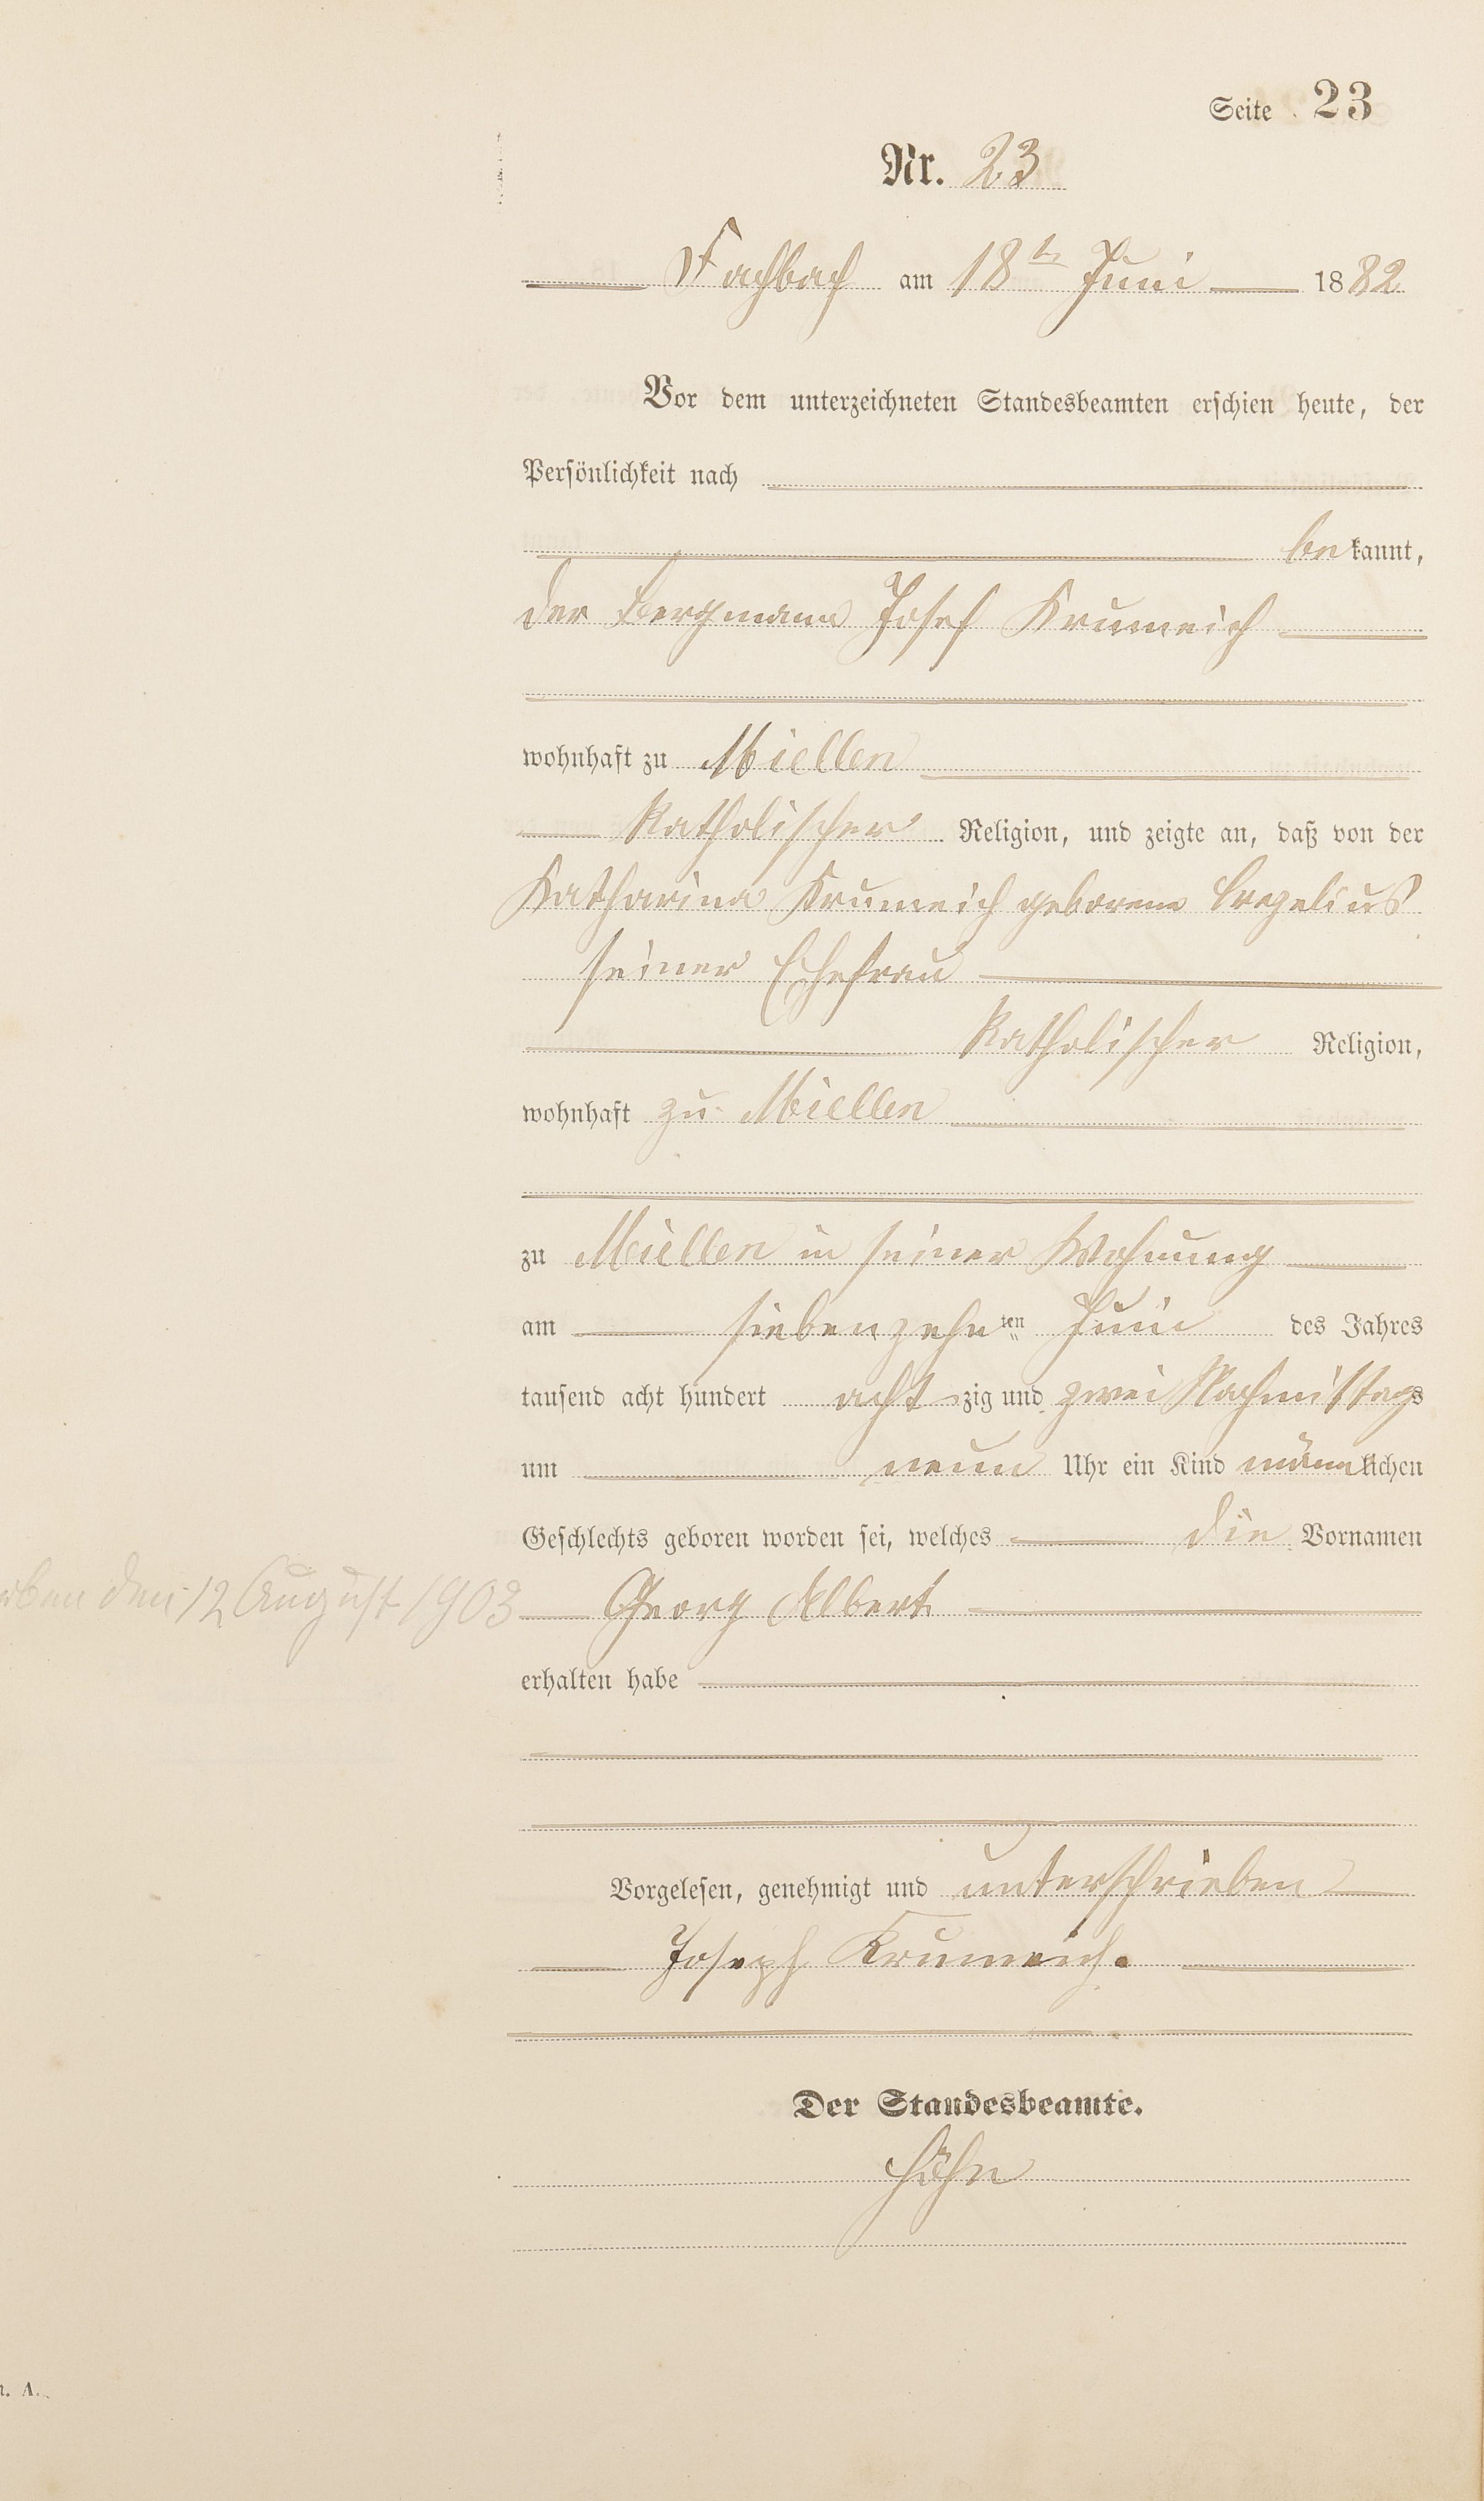 Seite 23
Nr. 23
Fachbach am 18ten Juni 1882
Vor dem unterzeichneten Standesbeamten erschien heute, der
Persönlichkeit nach
bekannt,
der Bergmann Josef Krumeich
wohnhaft zu Miellen
Katholischer Religion, und zeigte an, daß von der
Katharina Krumeich geborene
seiner Ehefrau
Katholischer Religion,
wohnhaft zu Miellen
zu Miellen in seiner Wohnung
am siebenzehnten Juni des Jahres
tausend acht hundert achtzig und zwei Nachmittags
um neun Uhr ein Kind männlichen
Geschlechts geboren worden sei, welches die Vornamen
rben den 12 August 1903
Georg Albert
erhalten habe
Vorgelesen, genehmigt und unterschrieben
Joseph Krumeich.
Der Standesbeamte.
Höhn
. A.